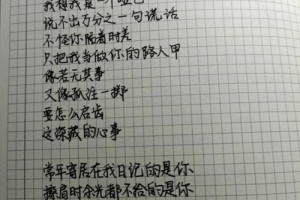 我想我是一个哑巴
说不出万分之一句谎话
不怪你隔着时差
只把我当做你的路人甲
像若无其事
又像孤注一掷
要怎么启齿
这深藏的心事
常年寄居在我日记的是你
擦肩时余光都不给的是你